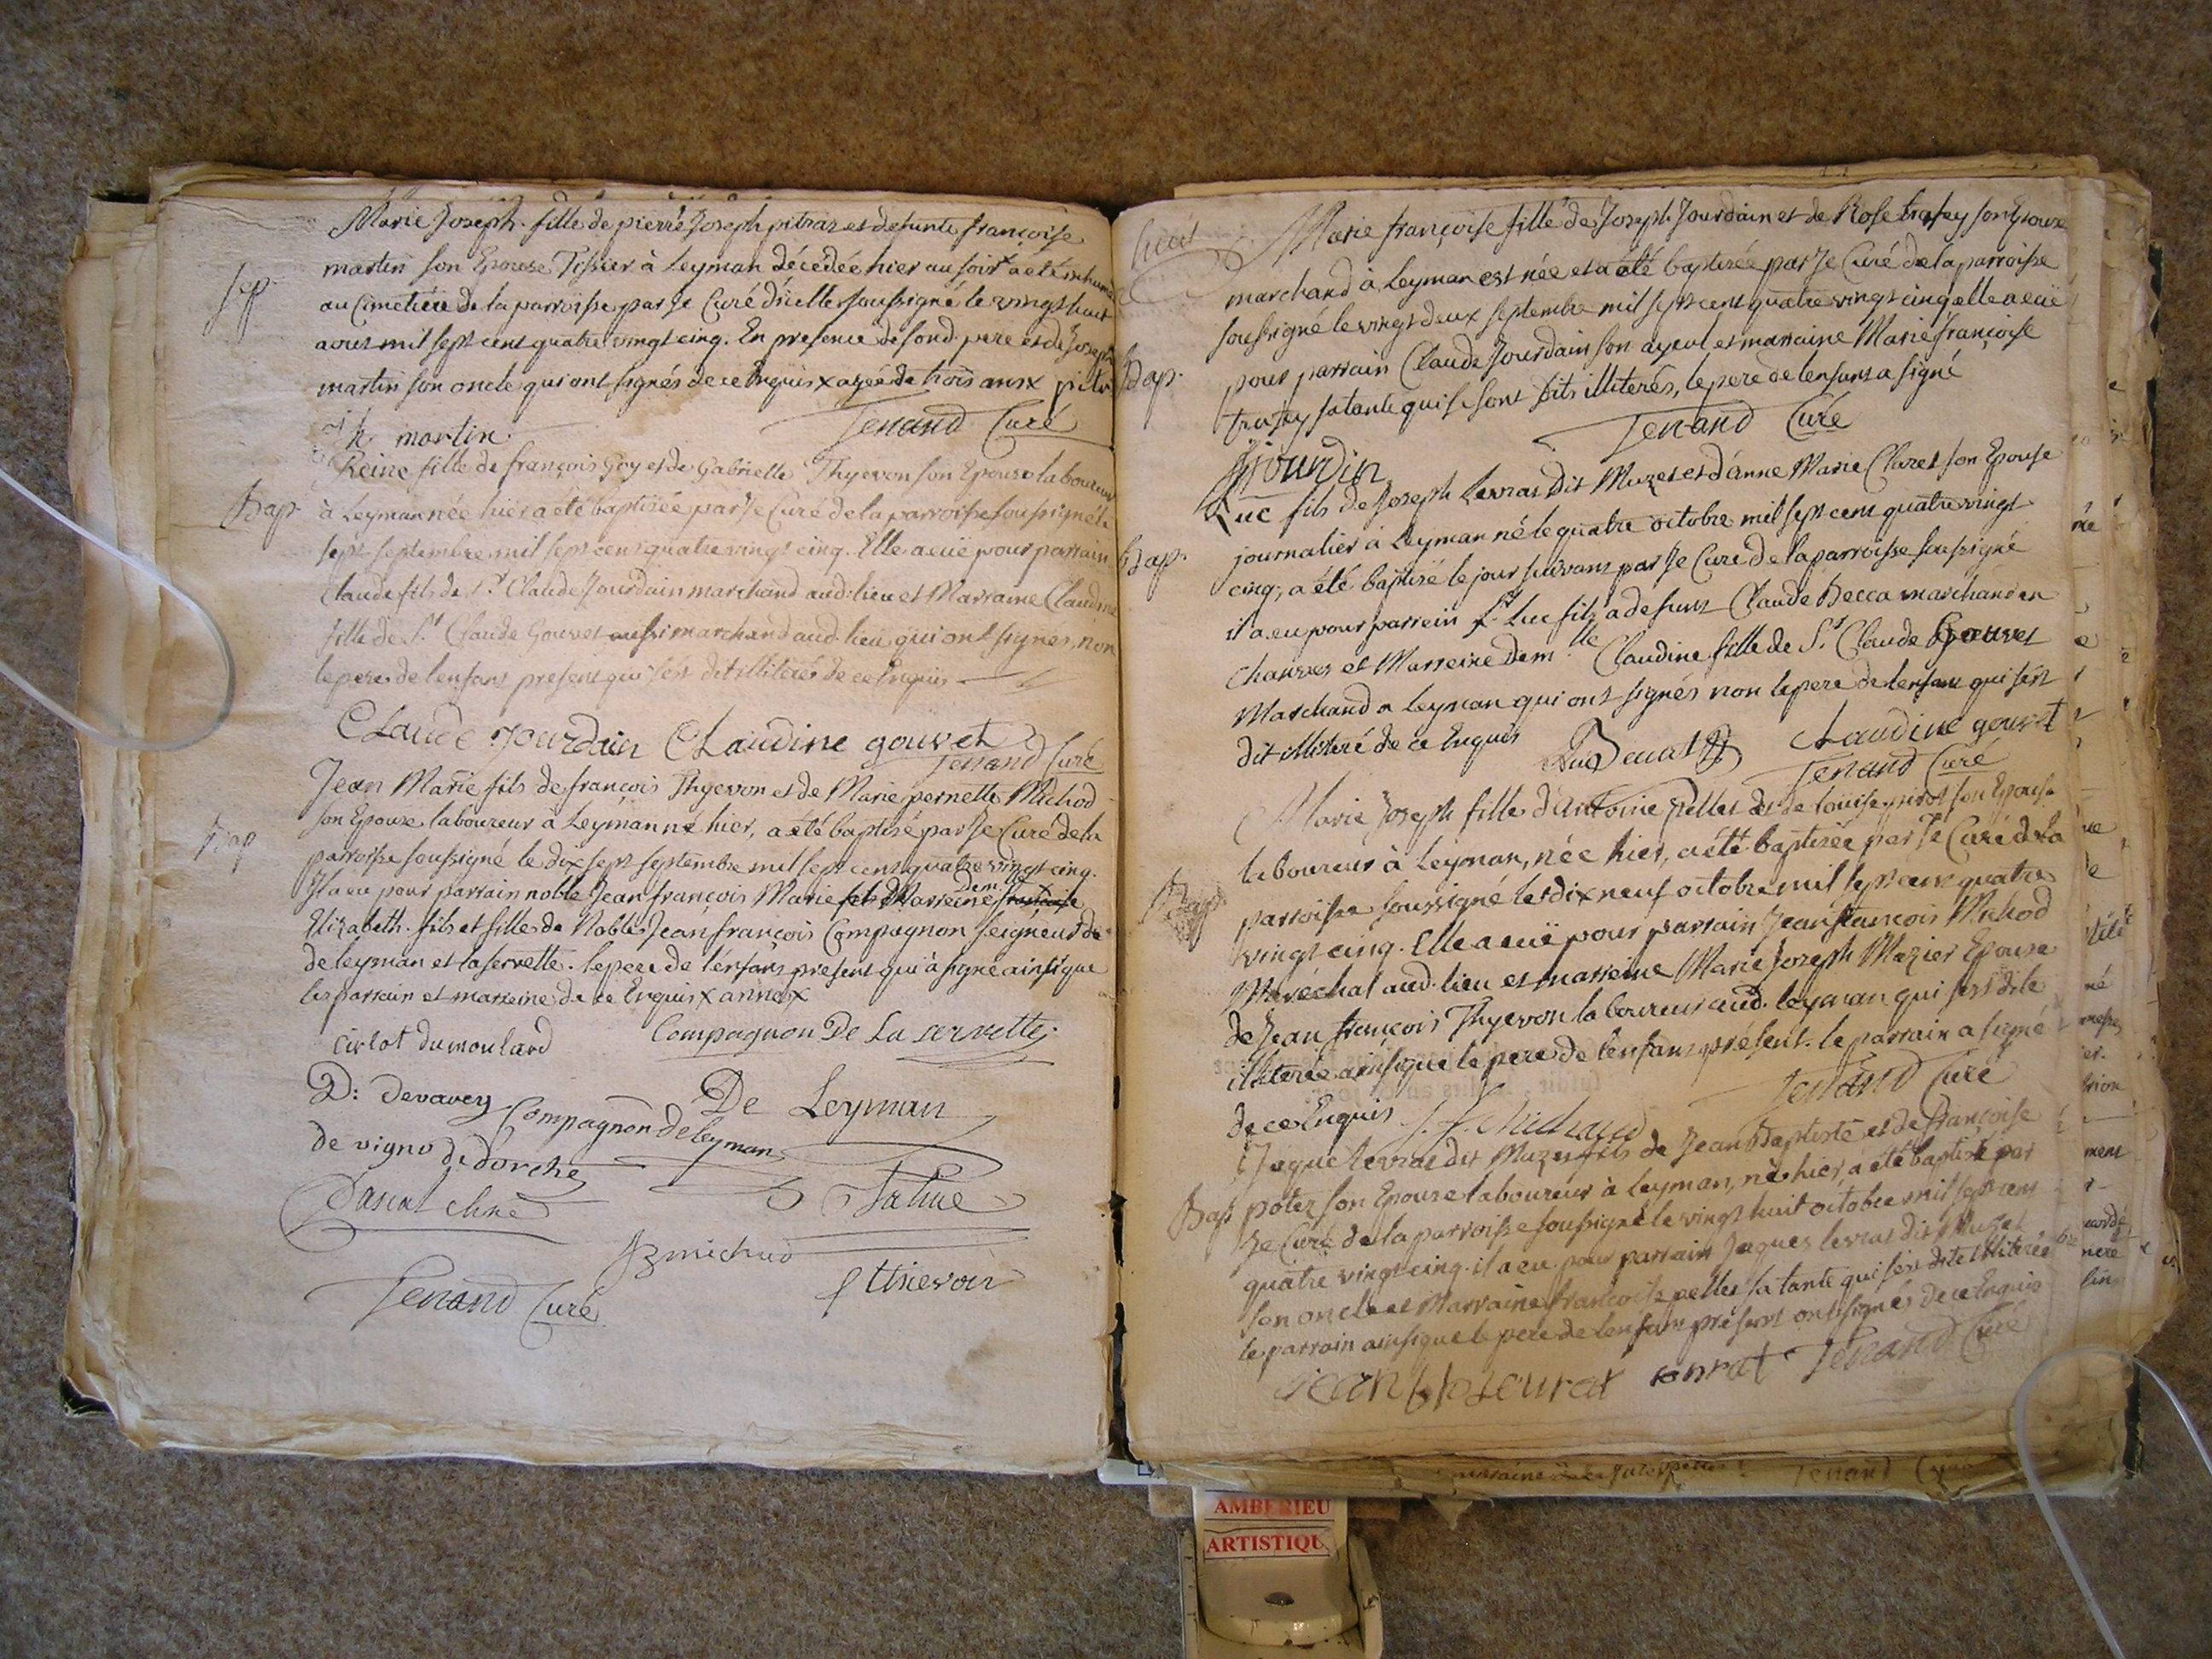 Marie Joseph. fille de pierre Joseph pitrat et defunte françoise
Sep.
martin son Epouse Tissier à Leyman décédée hier au soir x a été inhumée
au Cimetière de la parroisse par Je Curé d'icelle soussigné le vingt huit
aout mil sept cent quatre vingt cinq. En presence de sond. pere et de Joseph
martin son oncle qui ont signés de ce Enquis x agée de trois ans x
martin
Tenand Curé
Bap.
Reine fille de françois Goy et de Gabrielle Thyevon son Epouse laboureur
à Leyman née hier a été baptisée par Je Curé de la parroisse soussigné le
sept septembre mil sept cent quatre vingt cinq. Elle a eüe pour parrain
Claude fils de Sr. Claude Jourdain marchand aud. lieu et Marraine Claudine
fille de Sr. Claude Gouvet aussi marchand aud. lieu qui ont signes, non
le pere de lenfant present qui s'est dit illiteré de ce Enquis
Claude Jourdain Claudine gouvet
Tenand Curé
Bap
Jean Marie fils de françois Thyevon et de Marie pernette Michod
son Epouse laboureur à Leyman né hier, a été baptisé par Je Curé de la
parroisse soussigné le dix sept septembre mil sept cent quatre vingt cinq.
Il a eu pour parrain noble Jean françois Marie et Marreine Dem.lle françoise
Elizabeth. fils et filles de Noble Jean françois Compagnon seigneur de
de leyman et laservette. le pere de l'enfant present qui à signé ainsi que
les parrain et marreine de ce Enquis x
Cirlot dumoulard Compagnon De La servette
D: devavrey Compagnon deleyman De Leyman
de vignod dedorche
Pascal
michud
Thievoin
Tenand Curé
Marie françoise fille de Joseph Jourdain et de Rose trafey son Epouse
marchand à Leyman est née et a été baptisée par Je Curé de la parroisse
soussigné le vingt deux septembre mil sept cent quatre vingt cinq elle a eüe
Bap.
pour parrain Claude Jourdain son ayeul et marraine Marie françoise
trafey sa tante qui se sont dits illiterés, le pere de lenfant a signé
Tenand Curé
Jourdin
Luc fils de Joseph Levrat dit Muzet et d'anne Marie Claret son Epouse
Bap.
journalier à Leyman né le quatre octobre mil sept cent quatre vingt
cinq, a été baptisé le jour suivant par Je Curé de la parroisse soussigné
il a eu pour parrein Sr. Luc fils à defunt Claude Decca marchand en
chanvres et Marreine Dem.lle Claudine fille de Sr. Claude Gouvet
Marchand a Leyman qui ont signés non le pere de lenfant qui s'est
dit illiteré de ce Enquis
Claudine gouvet
Tenand Curé
Marie Joseph fille d'antoine pelles et de loüise pirot son Epouse
laboureur à Leyman, née hier, a été baptisée par Je Curé de la
Bap
parroisse soussigné le dix neuf octobre mil sept cent quatre
vingt cinq. Elle a eüe pour parrain Jean francois Michod
Maréchal aud. lieu et marreine Marie Joseph Mazier Epouse
de Jean françois Thyevon laboureur aud. leyman qui s'est dite
illiterée ainsi que le pere de lenfant présent. le parrain a signé
de ce Enquis
J. f. Michaud
Tenand Curé
Jaque levrat dit Muzet fils de Jean Baptiste et de françoise
Bap
potez son Epouse laboureur à Leyman, né hier, a été baptisé par
Je Curé de la parroisse soussigné le vingt huit octobre mil sept cent
quatre vingt cinq. il a eu pour parrain Jaques levrat dit Muzet
son oncle et Marraine francoise pelles sa tante qui s'est dite illiterée
le parrain ainsi que le pere de lenfant présent ont signés de ce Enquis
Tenand Curé
AMBERIEU
ARTISTIQU